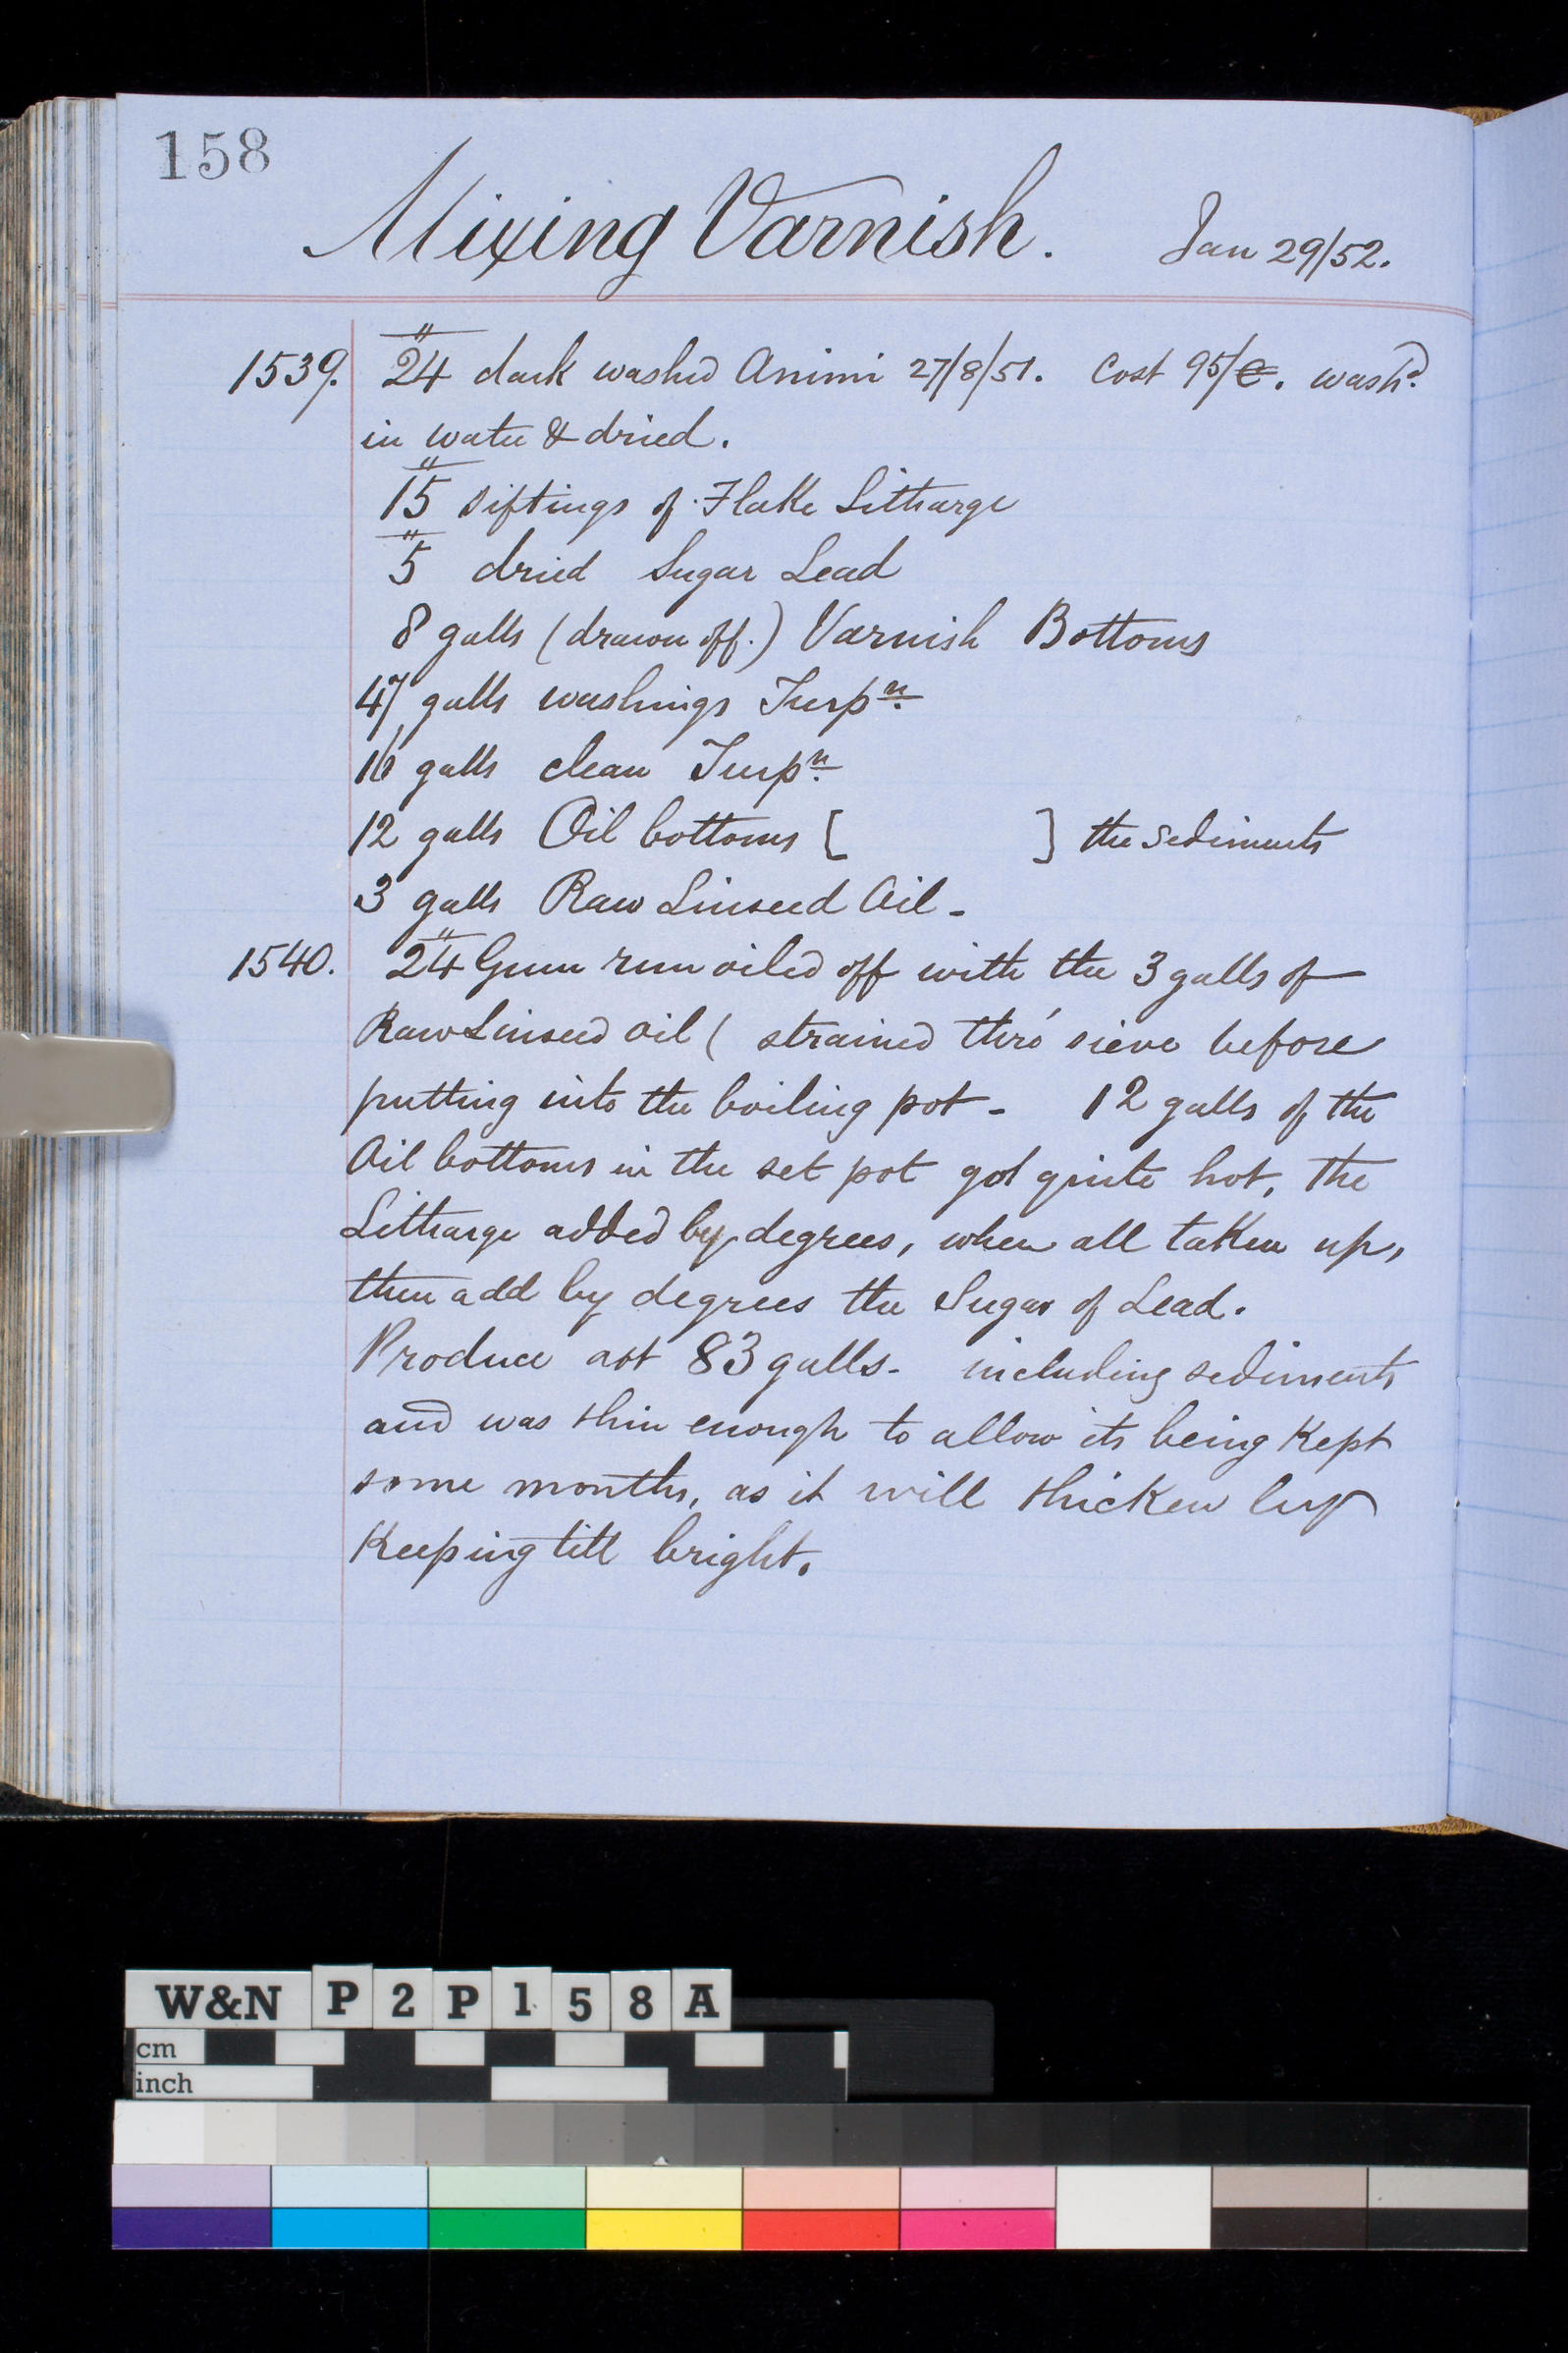 158
Mixing Varnish. Jan 29/52.
1539. 24" dark washed Animi 27/8/51. Cost 95/C. washd.
in water & dried.
15" siftings of Flake Litharge
5" dried Sugar Lead
8 galls (drawn off.) Varnish Bottoms
47 galls washings Turpn.
16 galls clean Turpn.
12 galls Oil bottoms [ ] the sediments
3 galls Raw Linseed Oil -
1540. 24" Gum run oiled off with the 3 galls of
Raw Linseed oil ( strained thro' sieve before
putting into the boiling pot - 12 galls of the
Oil bottoms in the set pot got quite hot, the
Litharge added by degrees, when all taken up,
then add by degrees the Sugar of Lead.
Produce abt 83 galls - including sediments
and was thin enough to allow its being kept
some months, as it will thicken by
keeping till bright.
W&N P2P158A
cm
inch